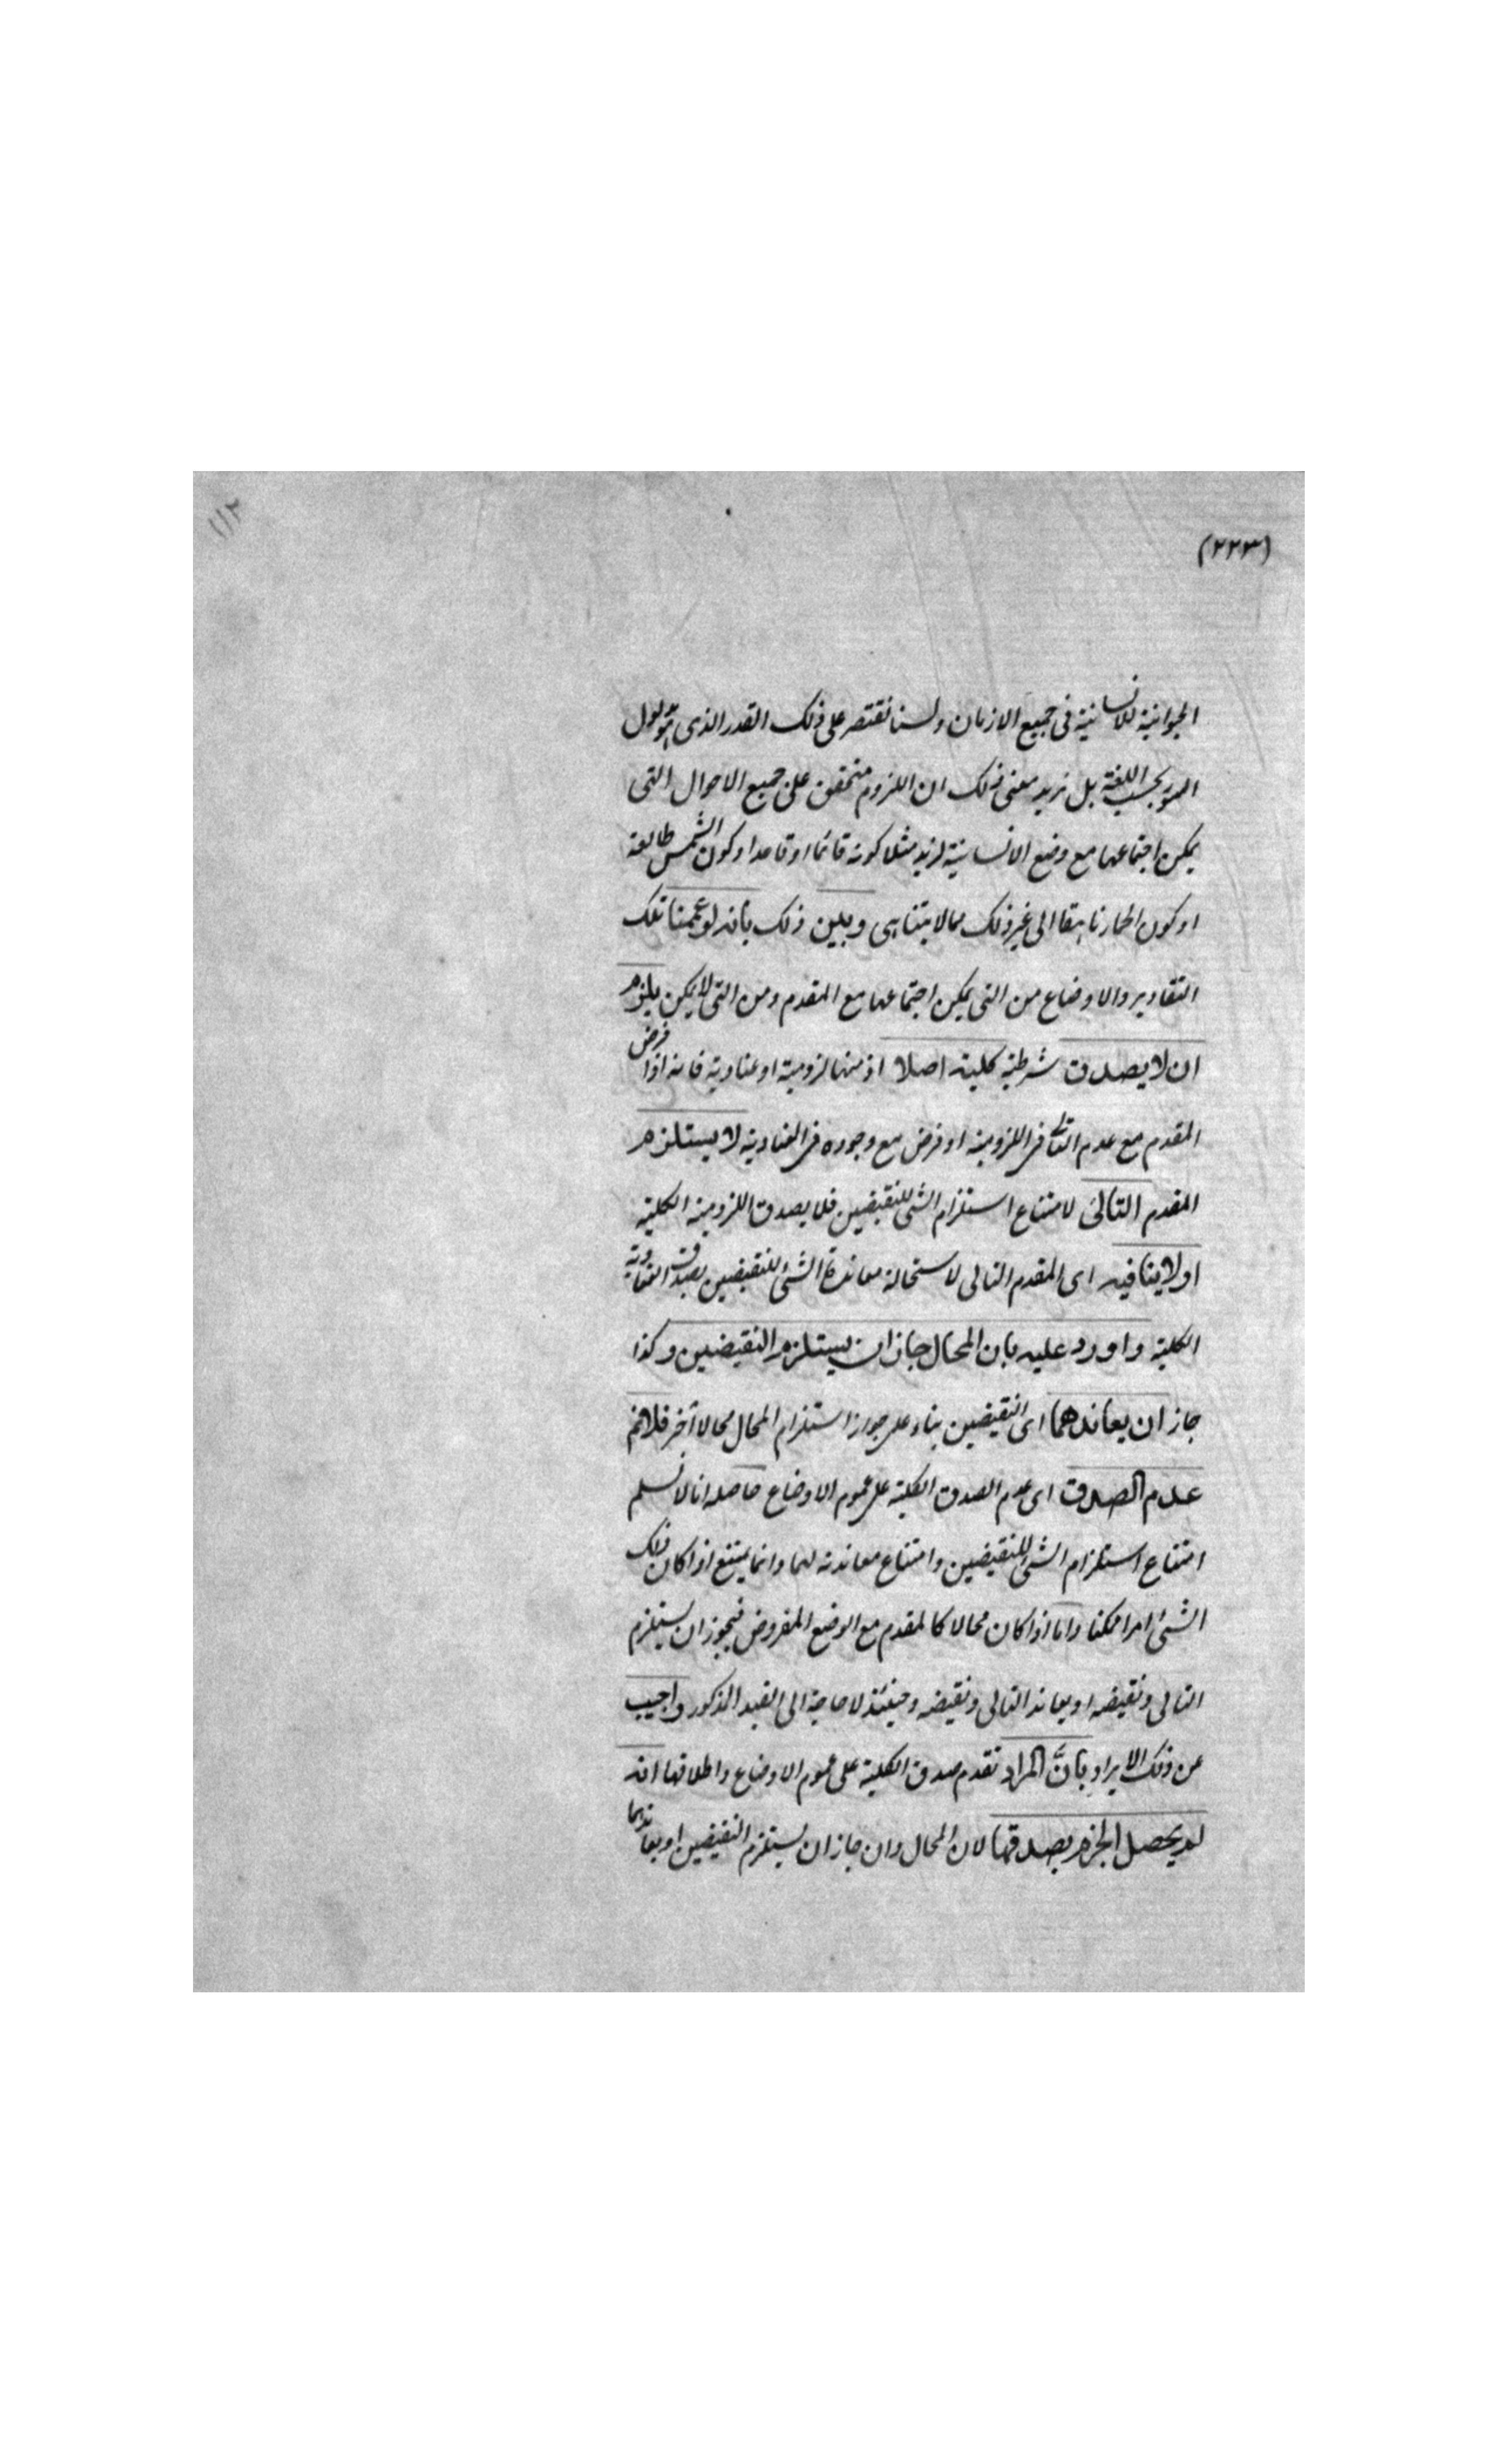 (٢٢٣)
١١٢
الحيوانية للانسانية فى جميع الازمان ولسنا نقتصر على ذلك القدر الذى هو مدلول
السور بحسب اللغة بل نريد معنى ذلك ان اللزوم متحقق على جميع الاحوال التى
يمكن اجتماعها مع وضع الانسانية لزيد مثلا كونه قائما او قاعدا وكون الشمس طالعة
او كون الحمار ناهقا الى غير ذلك مما لا يتناهى وبين ذلك بأنه لو عممنا تلك
التقادير والاوضاع من التى يمكن اجتماعها مع المقدم ومن التى لا يمكن يلزم
ان لا يصدق شرطية كلية اصلا اذ منها لزومية او عنادية فانه اذا فرض
المقدم مع عدم التالى فى اللزومية او فرض مع وجوده فى العنادية لا يستلزم
المقدم التالى لامتناع استلزام الشئ للنقيضين فلا يصدق اللزومية الكلية
او لا ينافيه اى المقدم التالى لاستحالة معاندة الشئ للنقيضين يصدق العنادية
الكلية واورد عليه بان المحال جاز ان يستلزم النقيضين وكذا
جاز ان يعاندهما اى النقيضين بناء على جواز استلزام المحال محالا آخر فلا نم
عدم الصدق اى عدم الصدق الكلية على عموم الاوضاع حاصله انا لا نسلم
امتناع استلزام الشئ للنقيضين وامتناع معاندته لهما وانما يمتنع اذا كان ذلك
الشئ امرا ممكنا واما اذا كان محالا كالمقدم مع الوضع المفروض فيجوز ان يستلزم
التالى ونقيضه او يعاند التالى ونقيضه وحينئذ لا حاجة الى القيد المذكور واجيب
عن ذلك الايراد بانّ المراد تقدم صدق الكلية على عموم الاوضاع واطلاقها انه
لم يحصل الجزم بصدقها لان المحال وان جاز ان يستلزم النقيضين او يعاندهما